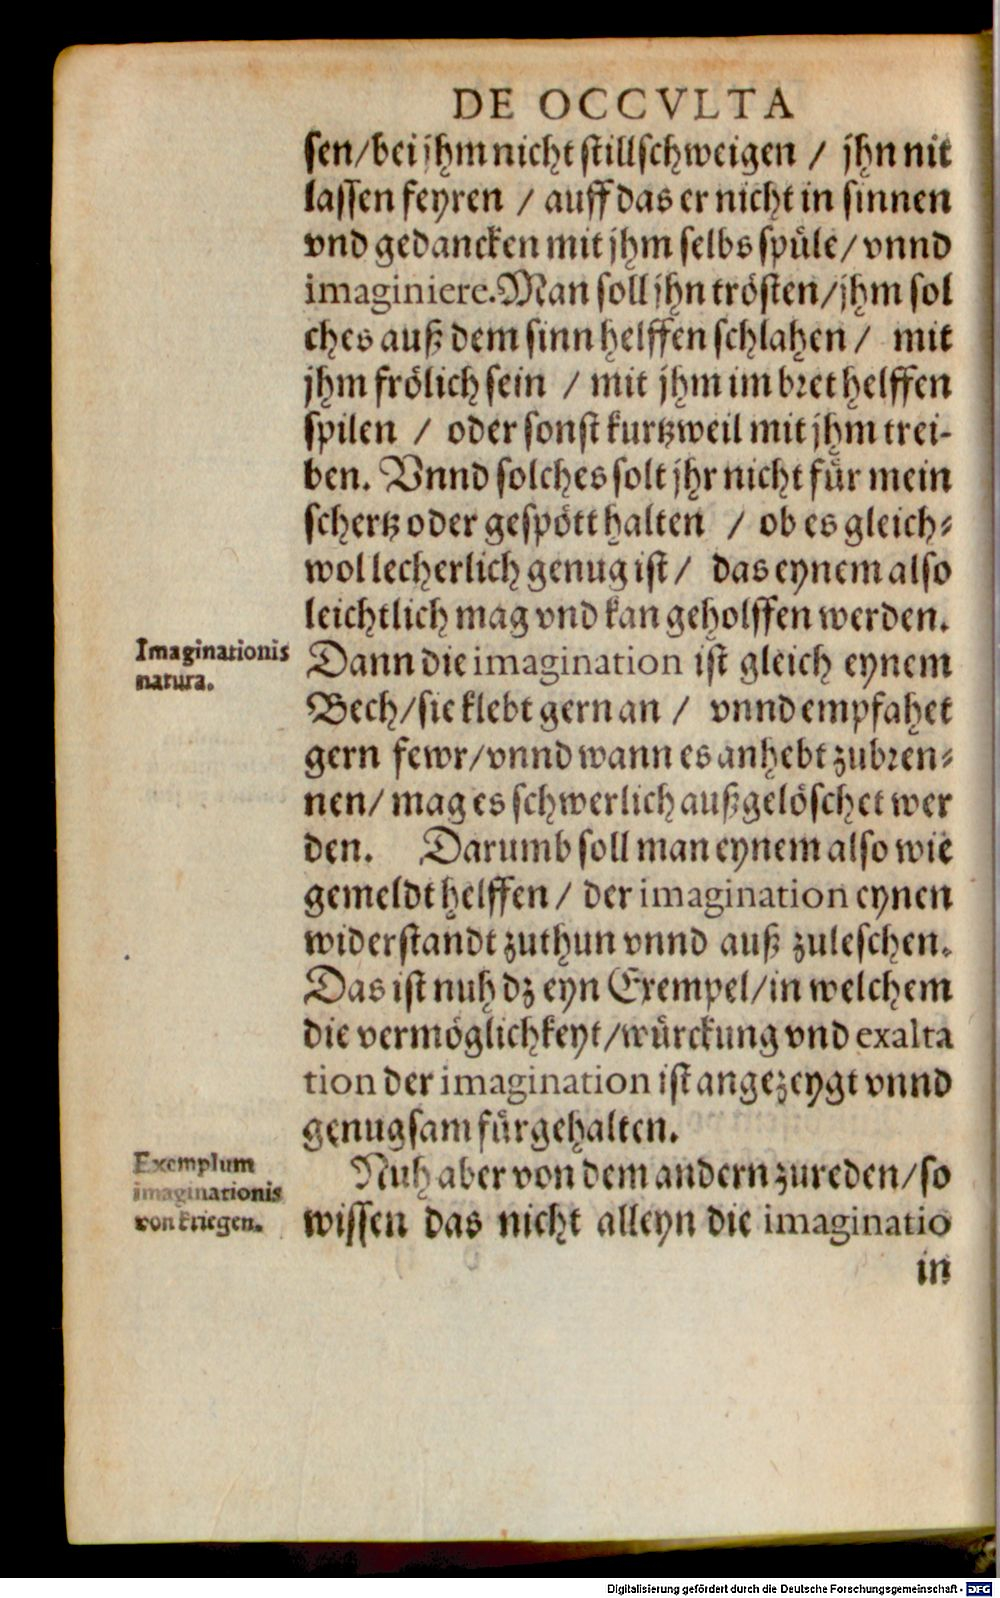 DE OCCVLTA
sen/bei jhm nicht stillschweigen / jhn nit
lassen feyren / auff das er nicht in sinnen
vnd gedancken mit jhm selbs spüle/vnnd
imaginiere. Man soll jhn trösten/jhm sol
ches auß dem sinn helffen schlahen / mit
jhm frölich sein / mit jhm im bret helffen
spilen / oder sonst kurtzweil mit jhm trei-
ben. Vnnd solches solt jhr nicht für mein
schertz oder gespött halten / ob es gleich-
wol lecherlich genug ist / das eynem also
leichtlich mag vnd kan geholffen werden.
Imaginationis
natura.
Dann die imagination ist gleich eynem
Bech/sie klebt gern an / vnnd empfahet
gern fewr/vnnd wann es anhebt zubren-
nen/mag es schwerlich außgelöschet wer
den. Darumb soll man eynem also wie
gemeldt helffen / der imagination eynen
widerstandt zuthun vnnd auß zuleschen.
Das ist nuh dz eyn Exempel/in welchem
die vermöglichkeyt/würckung vnd exalta
tion der imagination ist angezeygt vnnd
genugsam fürgehalten.
Exemplum
imaginationis
von kriegen.
Nuh aber von dem andern zureden/so
wissen das nicht alleyn die imaginatio
in
Digitalisierung gefördert durch die Deutsche Forschungsgemeinschaft - DFG